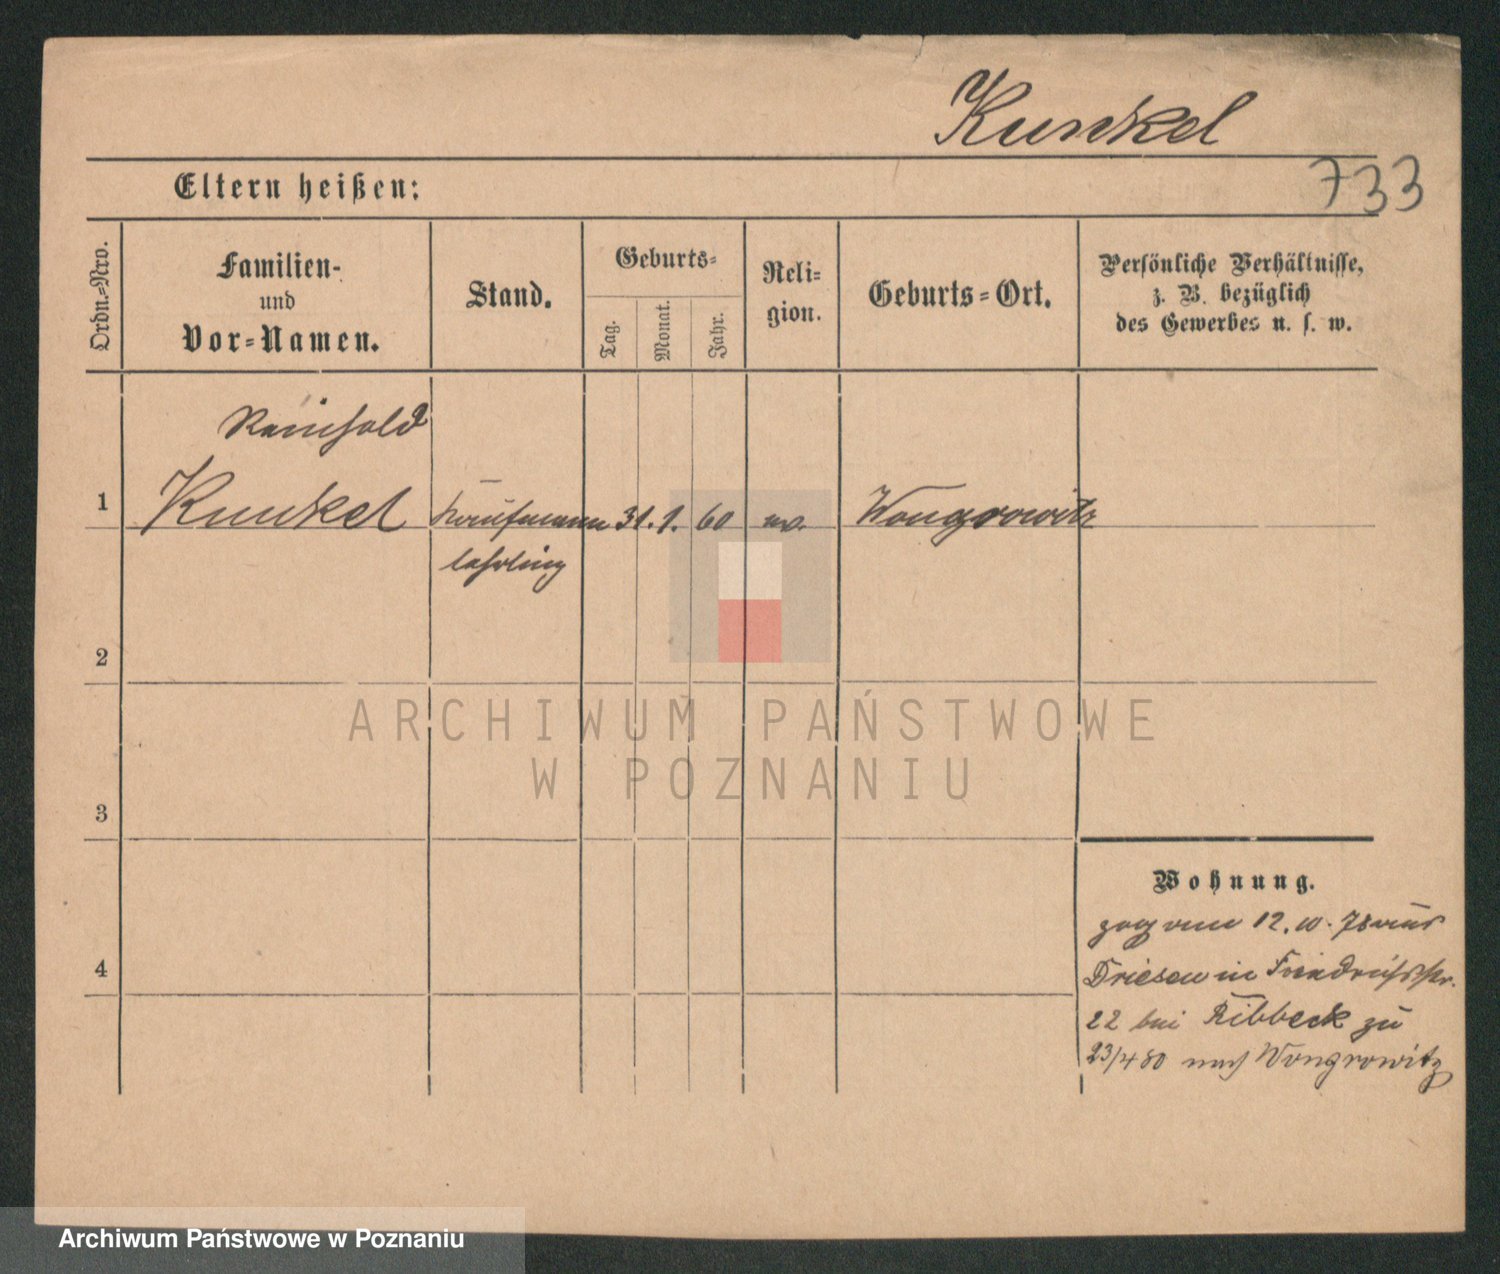 Kunkel
733
Eltern heißen:
Ordn.=Nro.
Familien-
und
Vor=Namen.
Stand.
Geburts=
Tag.
Monat.
Jahr.
Reli=
gion.
Geburts=Ort.
Persönliche Verhältnisse,
z. B. bezüglich
des Gewerbes u. s. w.
Reinhold
1 Kunkel Kaufmann 31. 1. 60 Wongrowitz
lehrling
2
3
4
ARCHIWUM PAŃSTWOWE
W POZNANIU
Wohnung.
zog vom 12. 10. 78 aus
Driesen in Friedrichstr.
22 bei Ribbeck zu
23/4 80 nach Wongrowitz
Archiwum Państwowe w Poznaniu